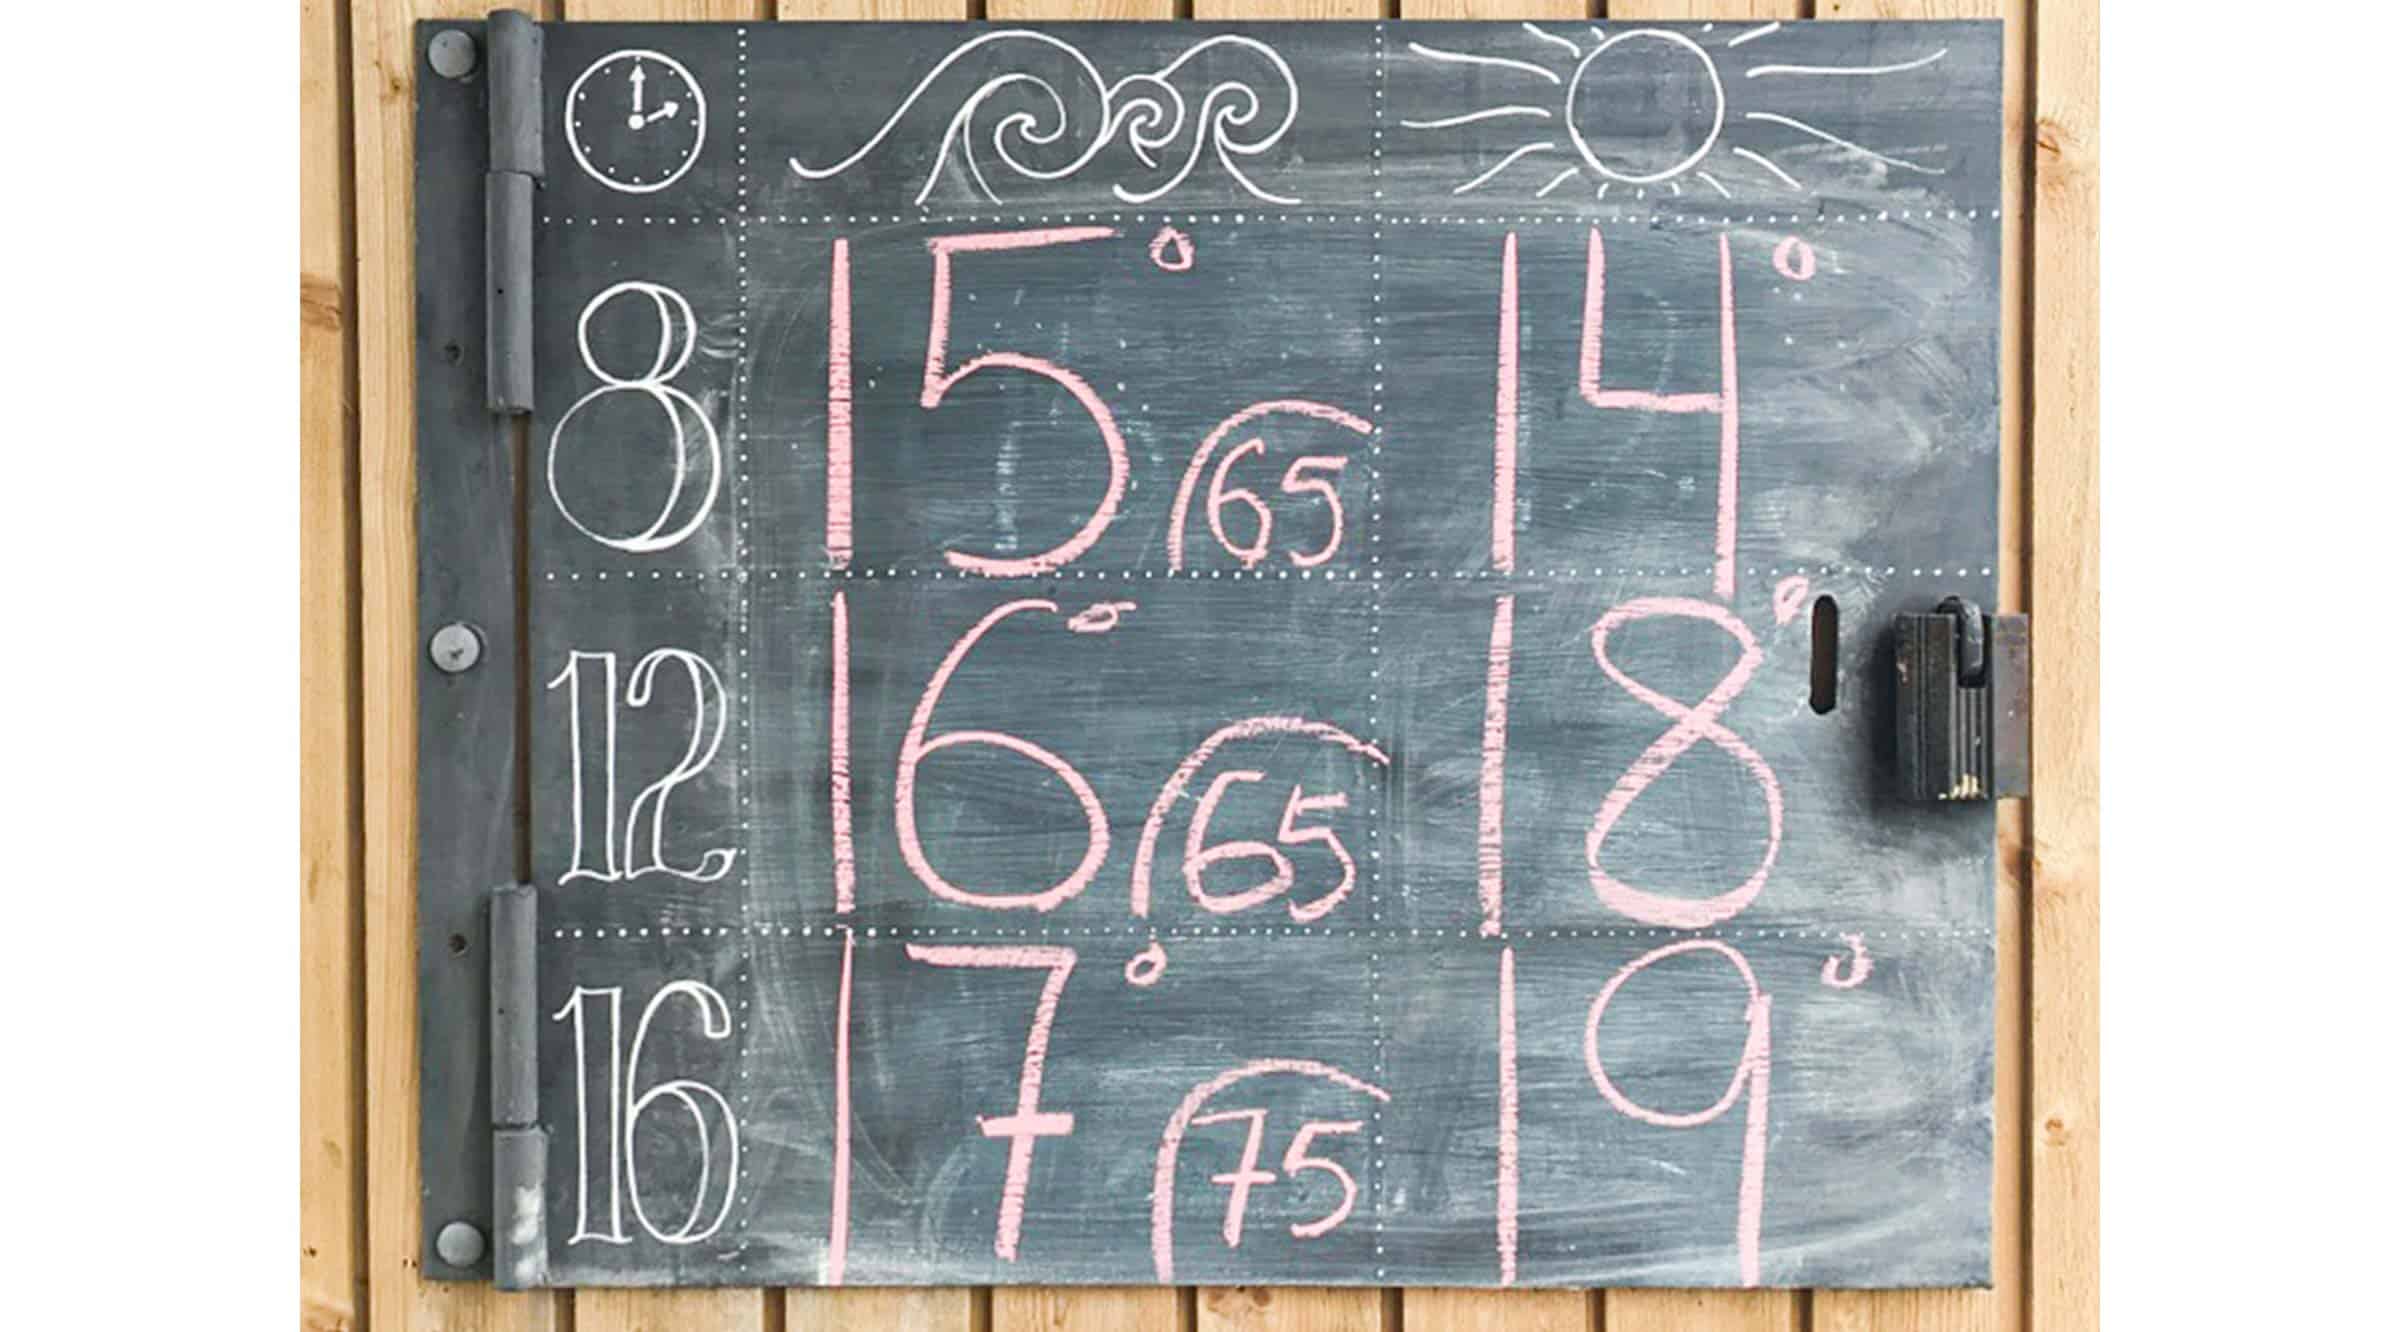 8 15° 65 14°
12 16° 65 18°
16 17° 75 19°